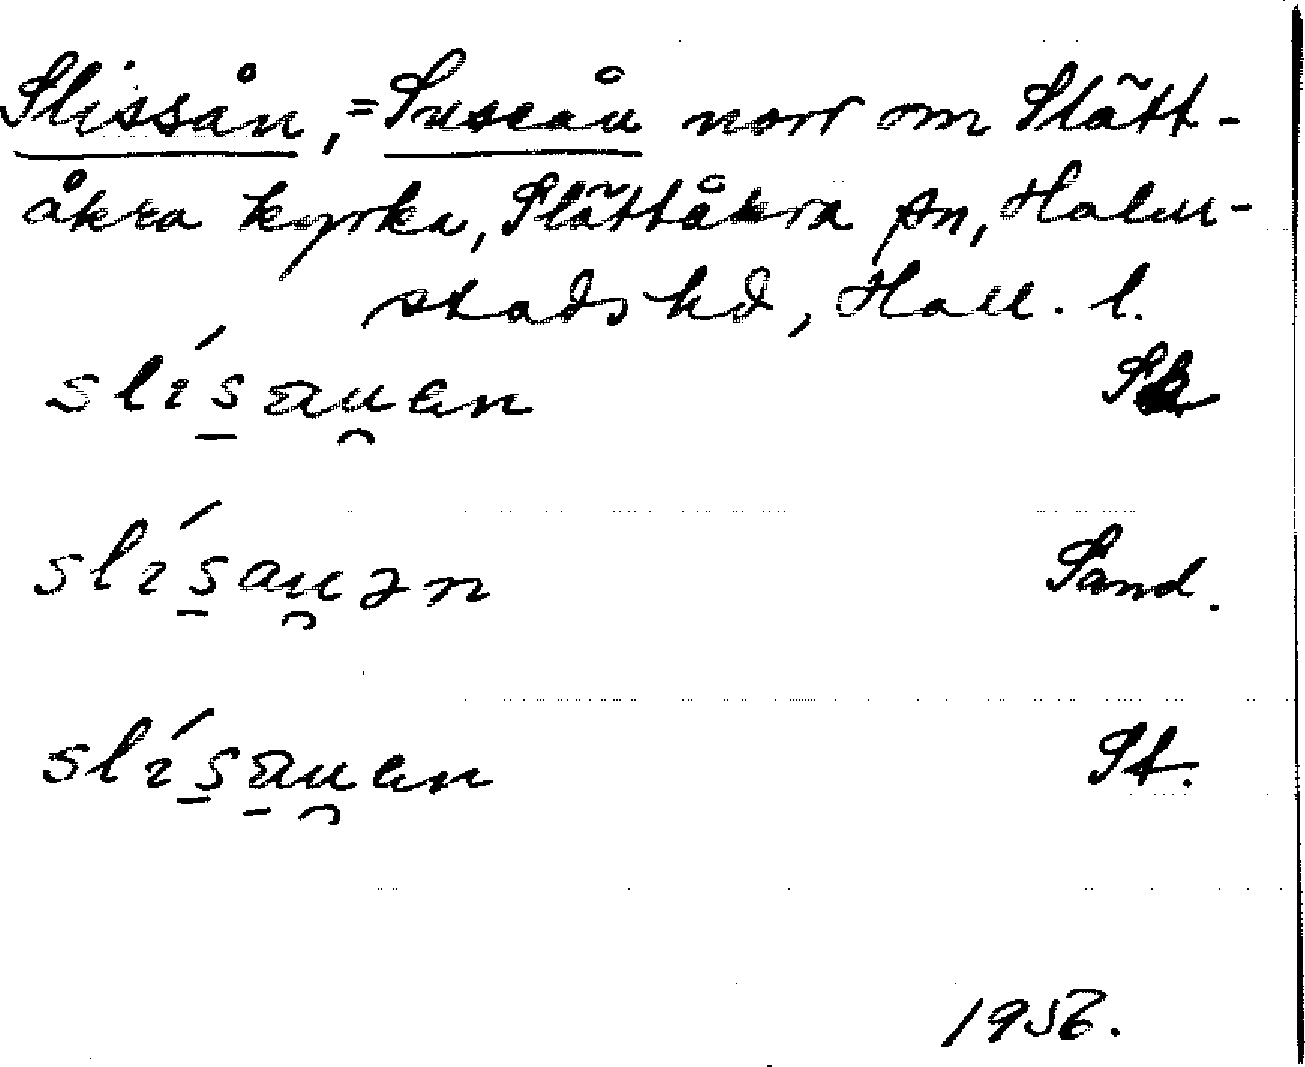 Slissån, = Suseån norr om Slätt-
åkra kyrka, Slättåkra sn, Halm-
stads hd, Hall. l.
slísauen
slísauən Sand.
slísauen St.
1956.